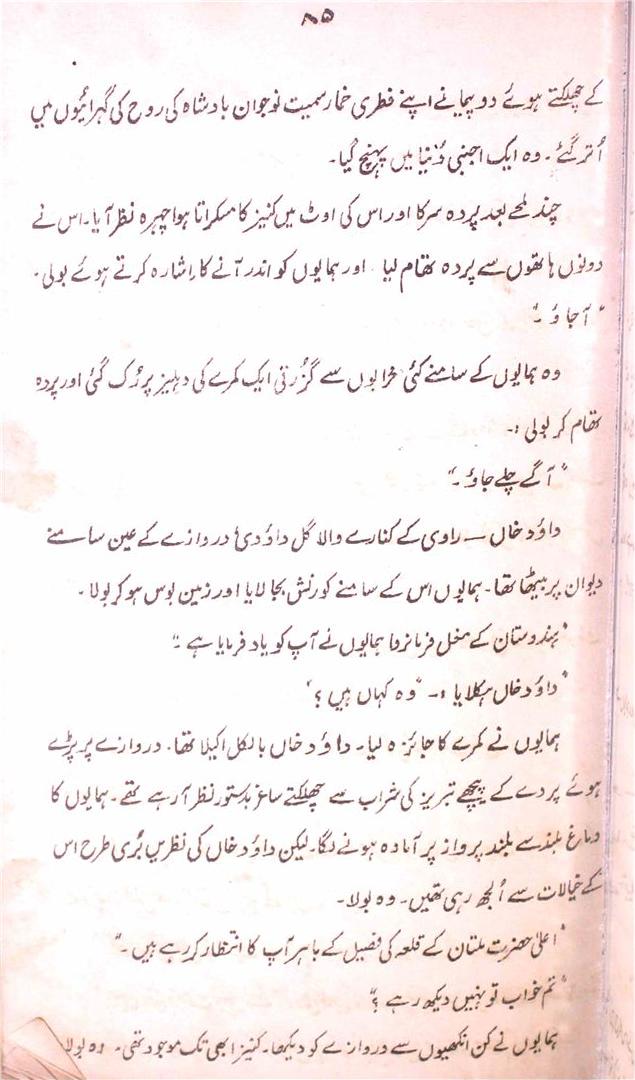 ۸۵
کے چھلکتے ہوئے دو پیمانے اپنے فطری خمار سمیت نوجوان بادشاہ کی روح کی گہرائیوں میں
اُتر گئے۔ وہ ایک اجنبی دُنیا میں پہنچ گیا۔
چند لمحے بعد پردہ سرکا اور اس کی اوٹ میں کنیز کا مسکراتا ہوا چہرہ نظر آیا۔ اس نے
دونوں ہاتھوں سے پردہ تھام لیا۔ اور ہمایوں کو اندر آنے کا اشارہ کرتے ہوئے بولی۔
"آجاؤ۔"
وہ ہمایوں کے سامنے کئی محرابوں سے گزرتی ایک کمرے کی دہلیز پر رُک گئی اور پردہ
تھام کر بولی :۔
"آگے چلے جاؤ۔"
داؤد خاں — راوی کے کنارے والا گل داؤدی دروازے کے عین سامنے
دیوان پر بیٹھا تھا۔ ہمایوں اس کے سامنے کورنش بجا لایا اور زمین بوس ہو کر بولا۔
"ہندوستان کے مغل فرمانروا ہمایوں نے آپ کو یاد فرمایا ہے۔"
"داؤد خاں ہکلایا :۔ "وہ کہاں ہیں؟"
ہمایوں نے کمرے کا جائزہ لیا۔ داؤد خاں بالکل اکیلا تھا۔ دروازے پر پڑے
ہوئے پردے کے پیچھے تبریز کی شراب سے چھلکتے ساغر بدستور نظر آرہے تھے۔ ہمایوں کا
دماغ بلند سے بلند پرواز پر آمادہ ہونے لگا۔ لیکن داؤد خاں کی نظریں بُری طرح اس
کے خیالات سے اُلجھ رہی تھیں۔ وہ بولا۔
"اعلیٰ حضرت ملتان کے قلعہ کی فصیل کے باہر آپ کا انتظار کر رہے ہیں۔"
"تم خواب تو نہیں دیکھ رہے؟"
ہمایوں نے کن انکھیوں سے دروازے کو دیکھا۔ کنیز ابھی تک موجود تھی۔ وہ بولا